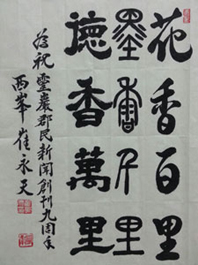 花香百里
墨香千里
德香萬里
為祝靈巖郡民新聞創刊九周年
西峯崔永天